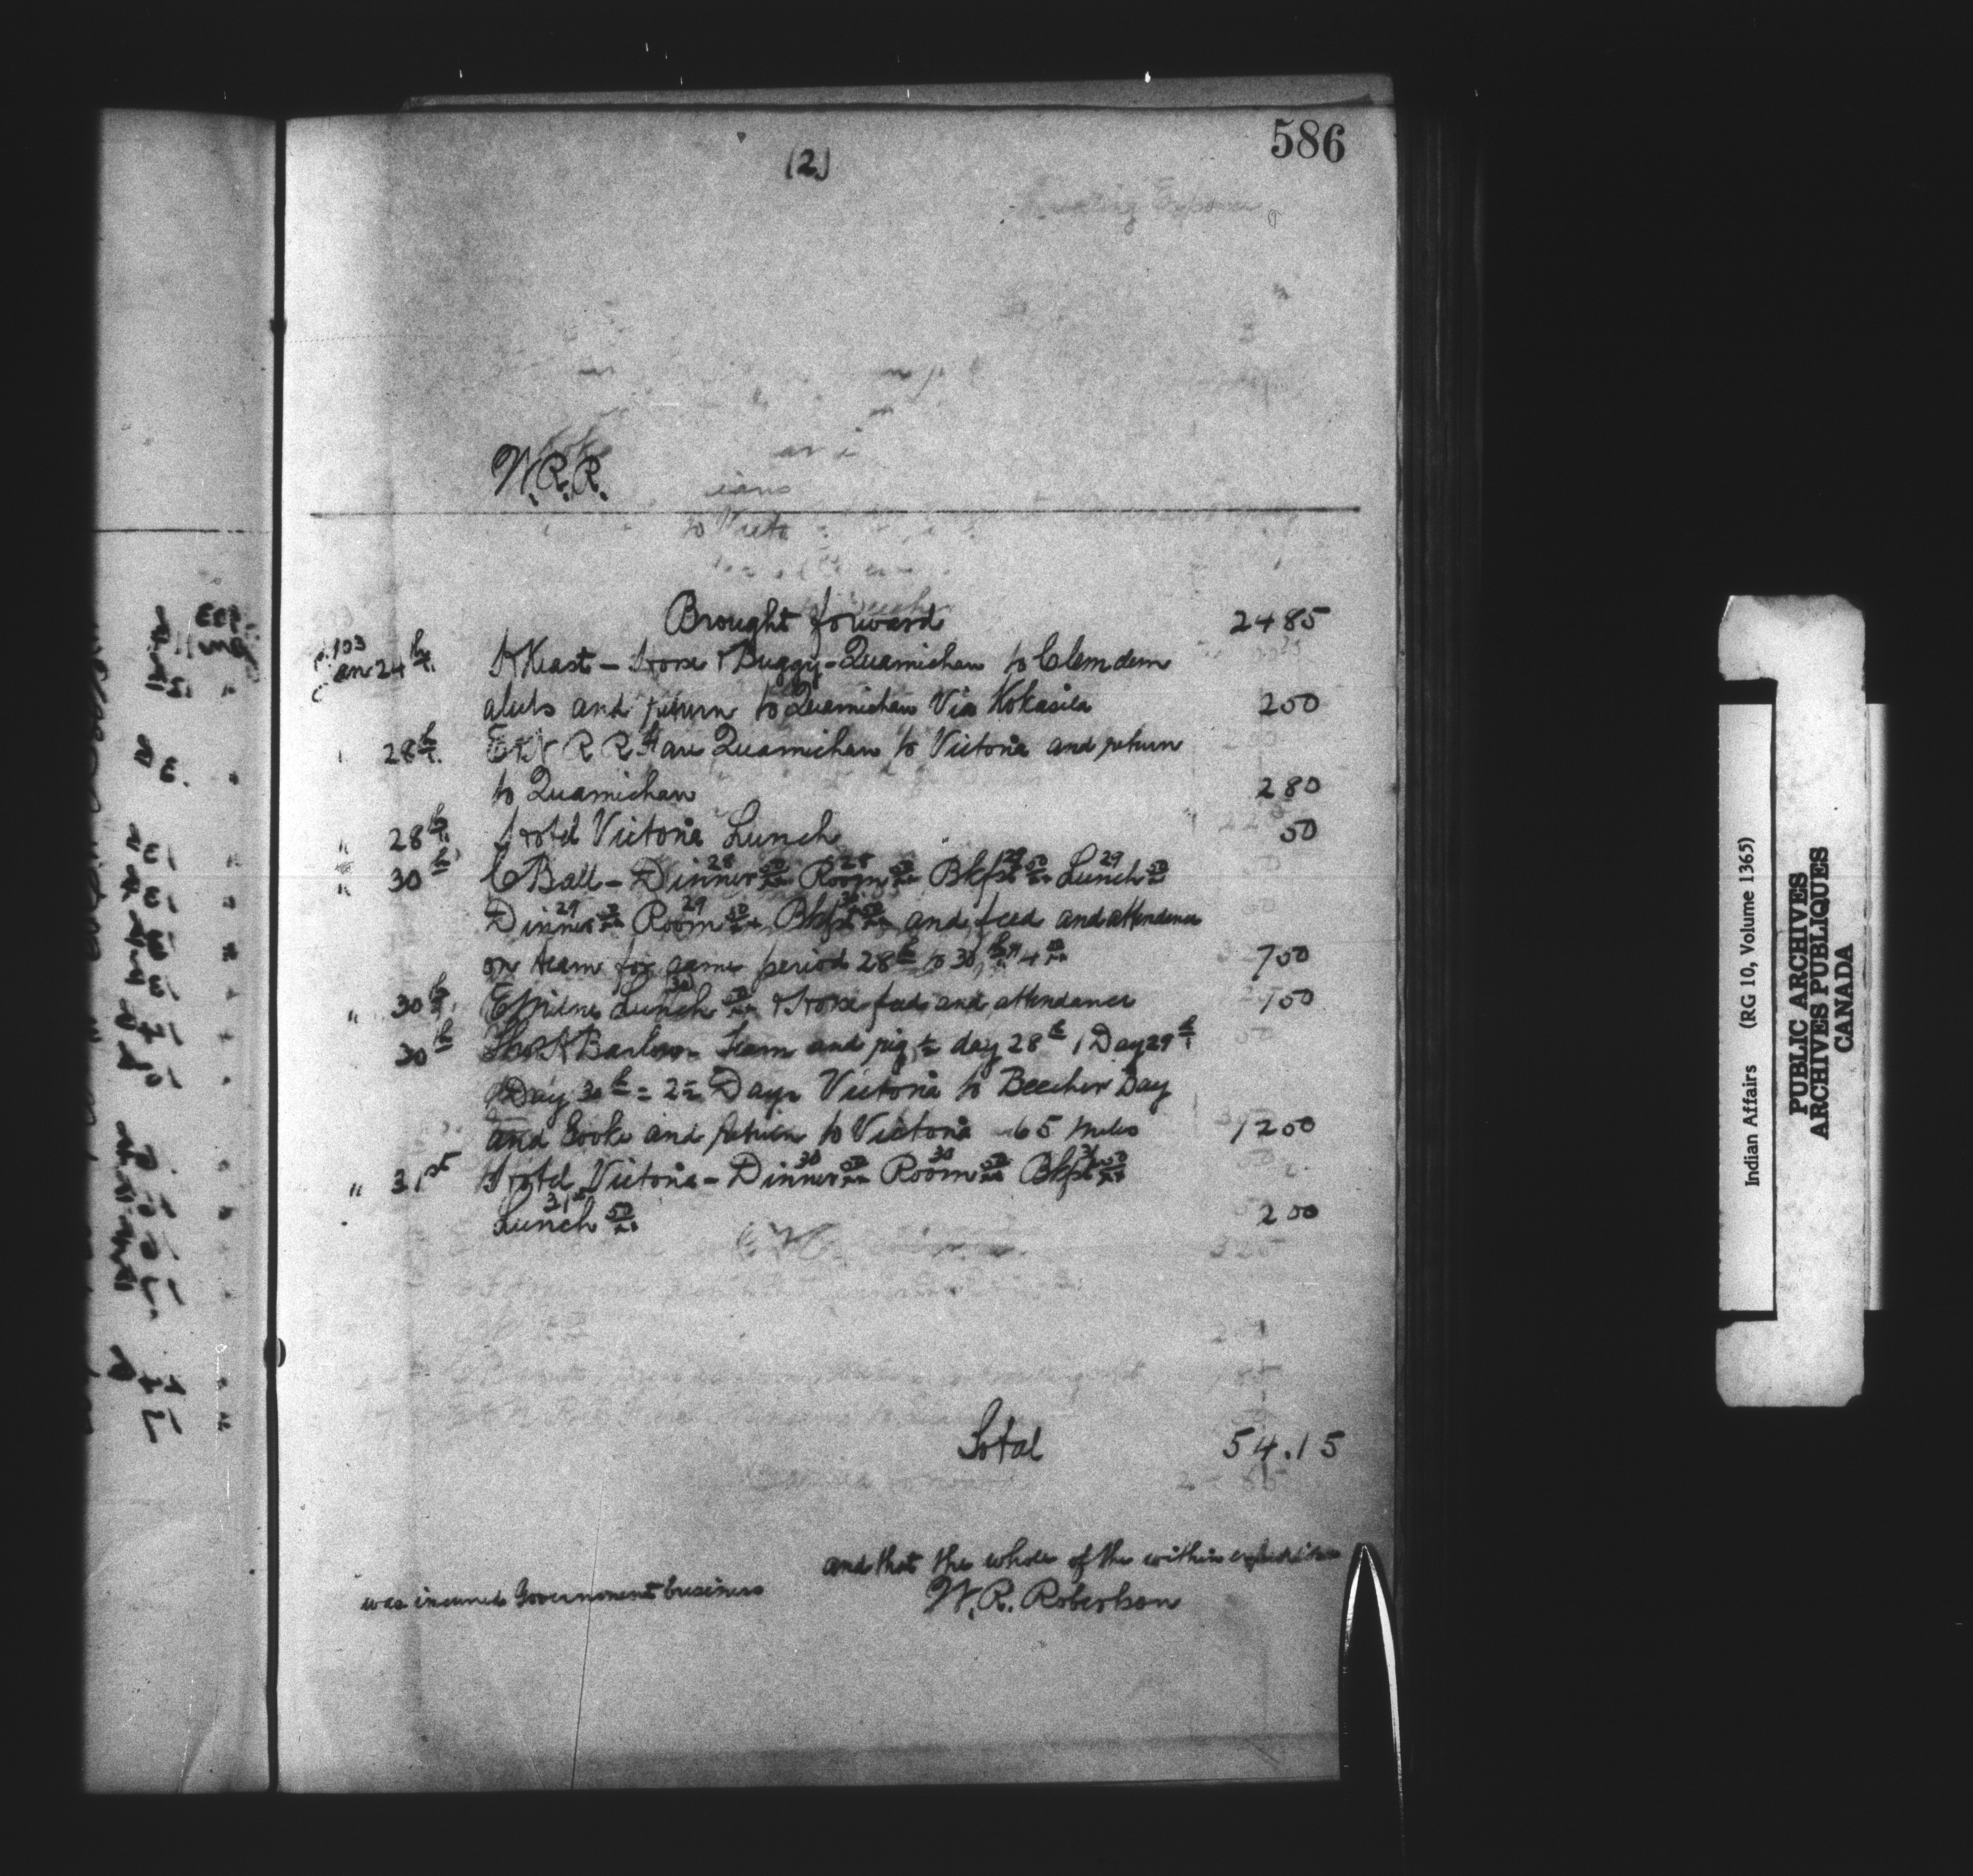 586
(2)
W.R.R.
Brought forward 24 85
1903
Jan 24th H Keast - Horse & Buggy - Quamichan to Clemclem
aluts and return to Quamichan Via Kokasila 2 50
" 28th E & N R R Fare Quamichan to Victoria and return
to Quamichan 2 80
" 28th Hotel Victoria Lunch 50
" 30th C Ball - Dinner 28 50 Room 28 50 Bkfst 29 50 Lunch 29 50
Dinner 29 50 Room 29 50 Bkfst 30 50 and feed and attendance
on team for same period 28th to 30th 4 00 7 50
" 30th Lunch 30 50 & Horse feed and attendance 1 50
30th Thos A Barlow - Team and rig ½ day 28th 1 Day 29th
1 Day 30th = 2½ Days Victoria to Beecher Bay
and Sooke and return to Victoria 65 miles 12 00
" 31st Hotel Victoria - Dinner 30 50 Room 30 50 Bkfst 31 50
Lunch 31st 50 2 00
Total 54.15
and that the whole of the within expenditure
was incurred Government business
W. R. Robertson
Indian Affairs (RG 10, Volume 1365)
PUBLIC ARCHIVES
ARCHIVES PUBLIQUES
CANADA